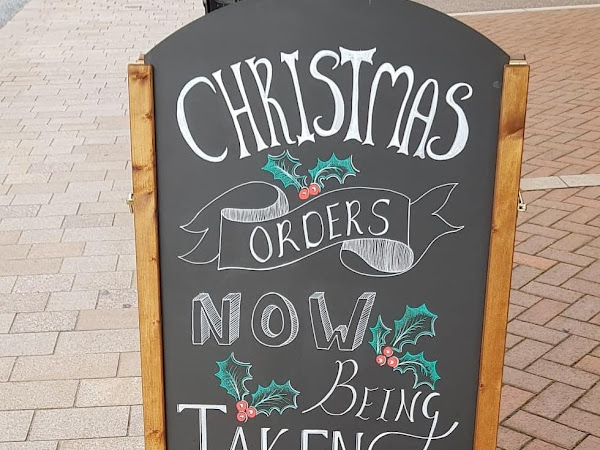 CHRISTMAS
ORDERS
NOW
BEING
TAKEN